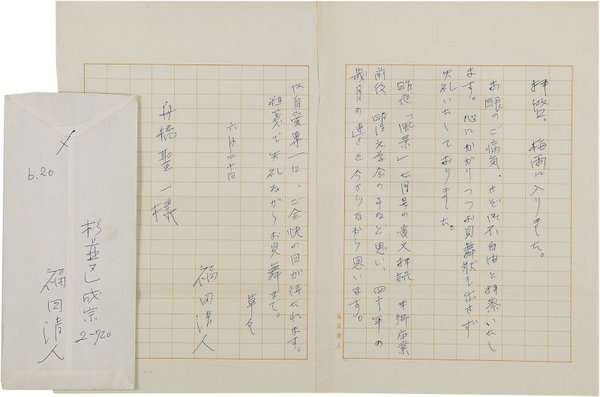 拝啓。 梅雨に入りました。
お眼のご病気、さぞ御不自由と拝察いたし
ます。心にかかりつつお見舞状も出さず
失礼いたしておりました。
昨夜「風景」七月号の貴文拝読
前後、明治文学会のことなど思い、四十年の
歳月の速さを今さらながら思います。
御自愛専一に、ご全快の日が待たれます。
粗箋で失礼ながらお見舞まで。
草々
六月二十日
福田清人
舟橋聖一様
福田清人
〆
6.20
杉並区成宗
2-720
福田清人